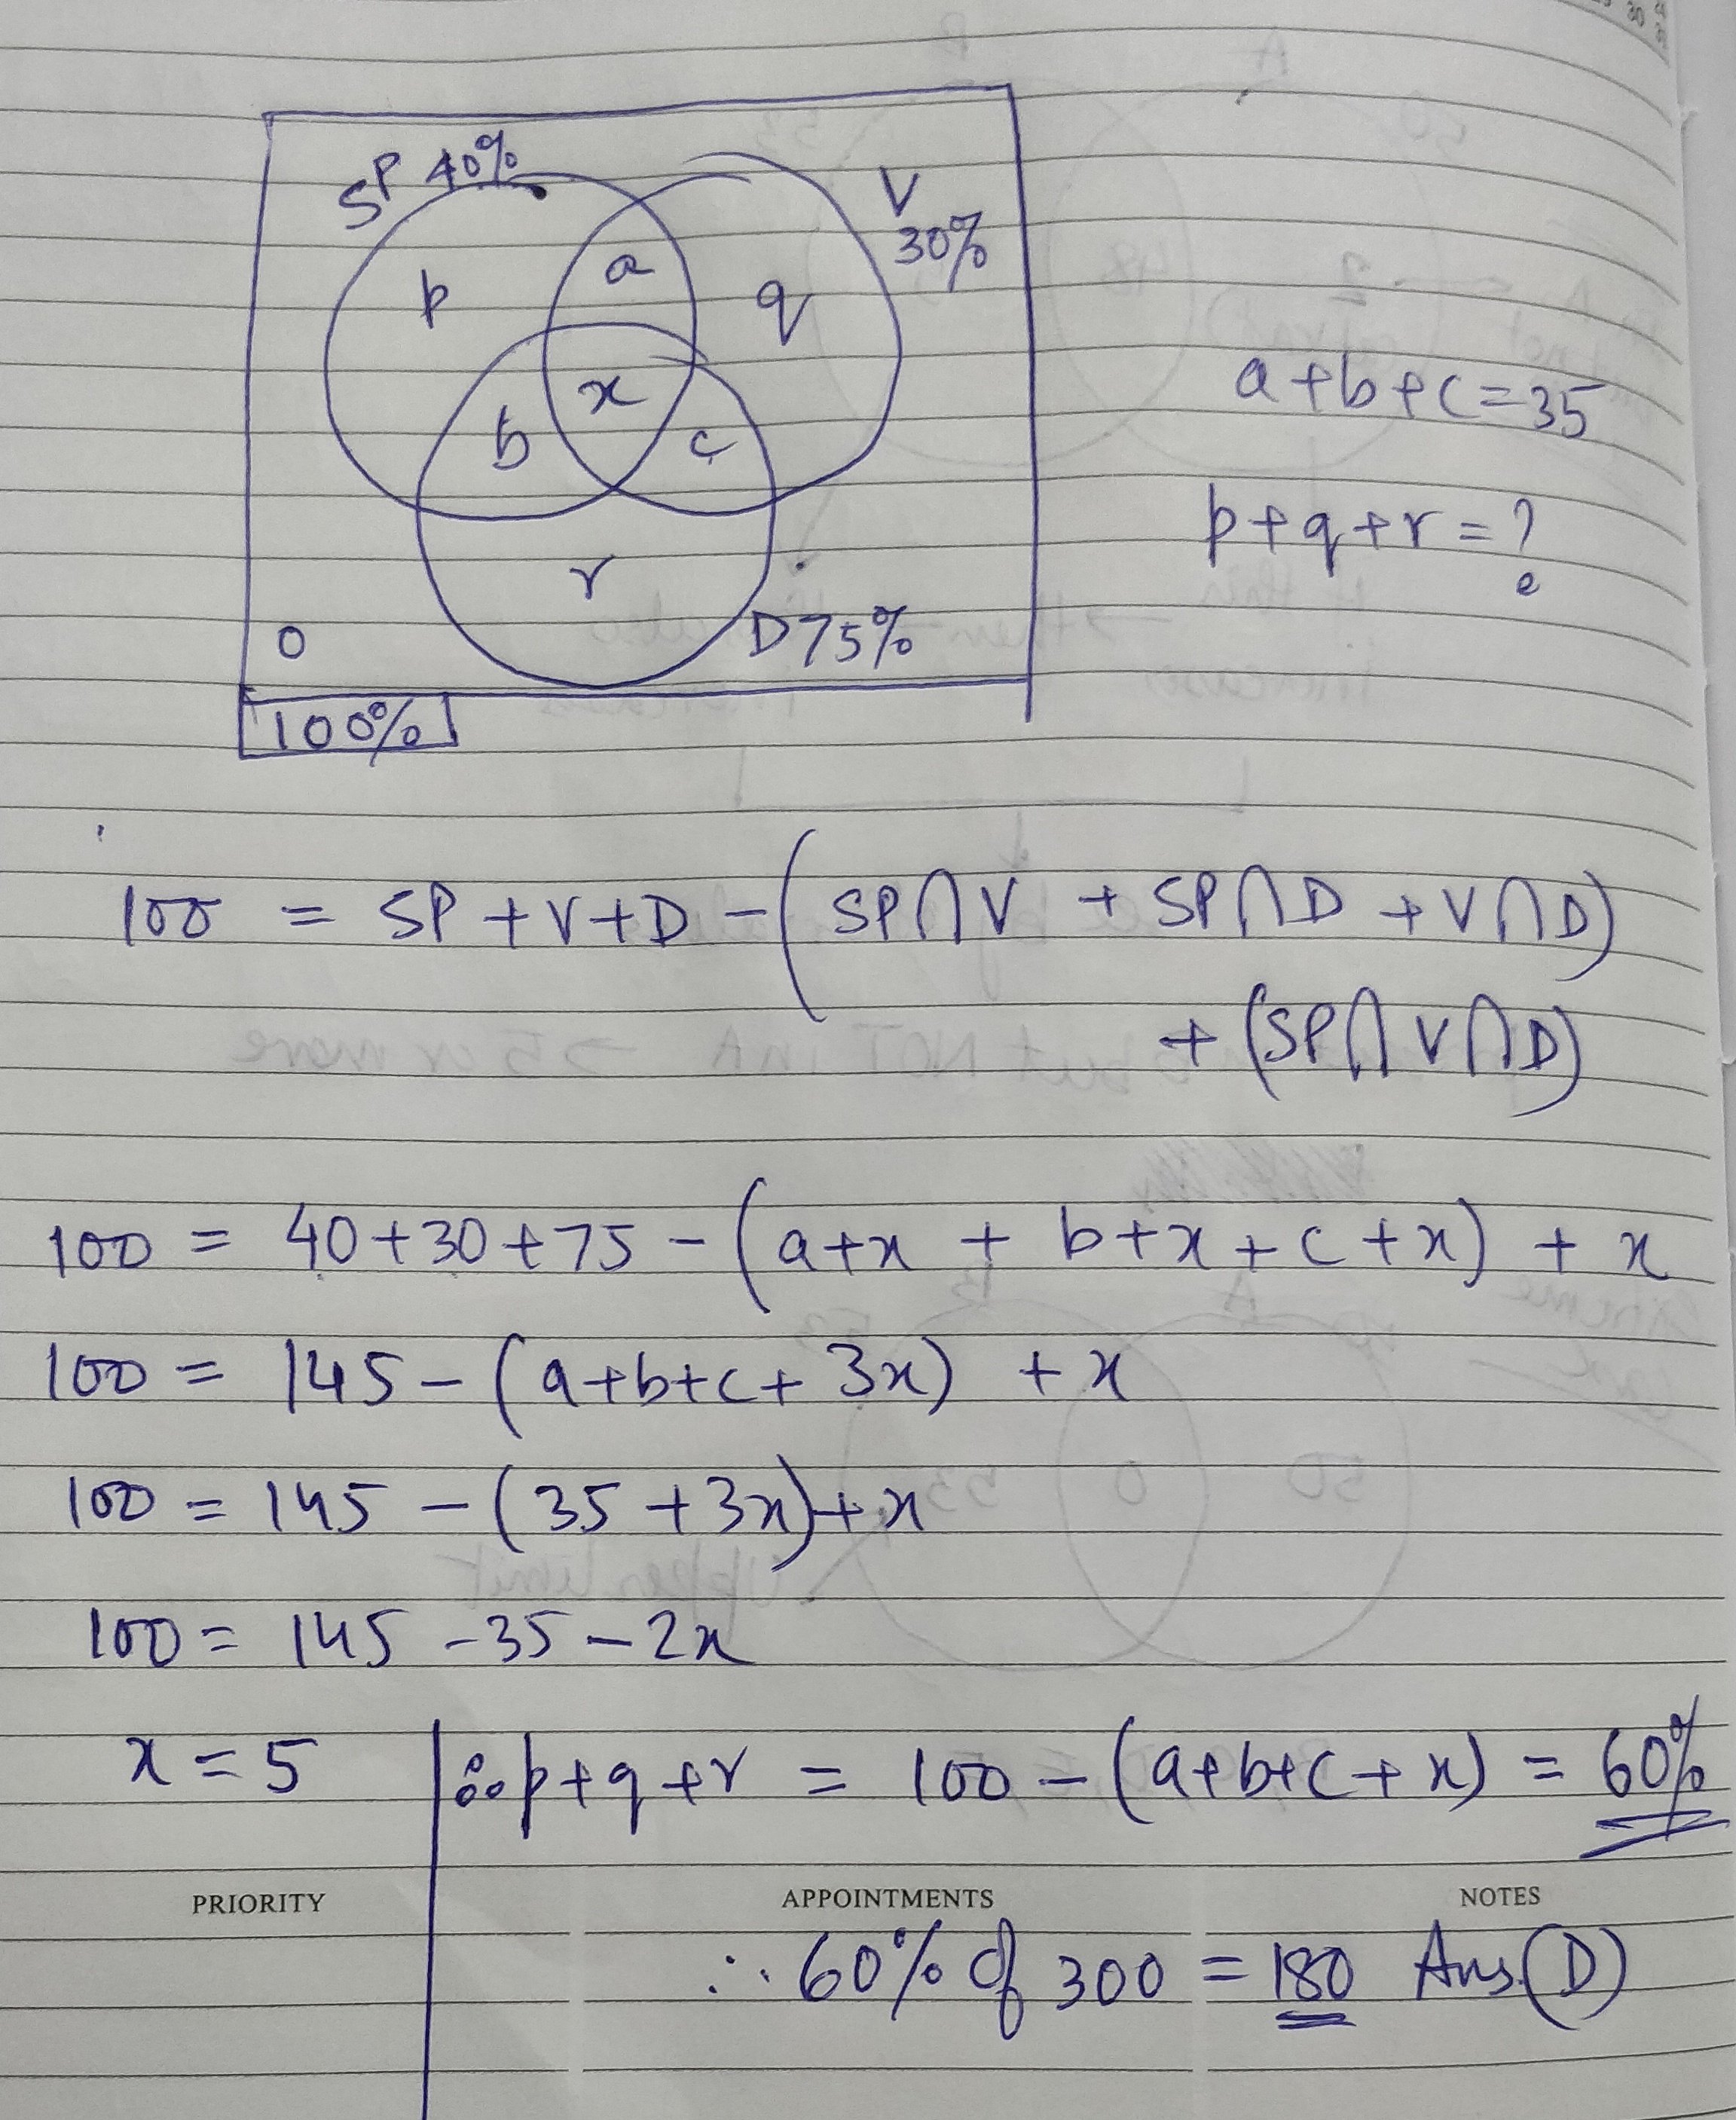 SP 40%
V
30%
p
a
q
x
b
c
r
0
D 75%
100%
a+b+c=35
p+q+r=?
100 = SP + V + D - (SP∩V + SP∩D + V∩D)
+ (SP∩V∩D)
100 = 40+30+75 - (a+x + b+x+c+x) + x
100 = 145 - (a+b+c+3x) + x
100 = 145 - (35+3x)+x
100 = 145 - 35 - 2x
x = 5
∴ p+q+r = 100 - (a+b+c+x) = 60%
PRIORITY
APPOINTMENTS
NOTES
∴ 60% of 300 = 180 Ans.(D)